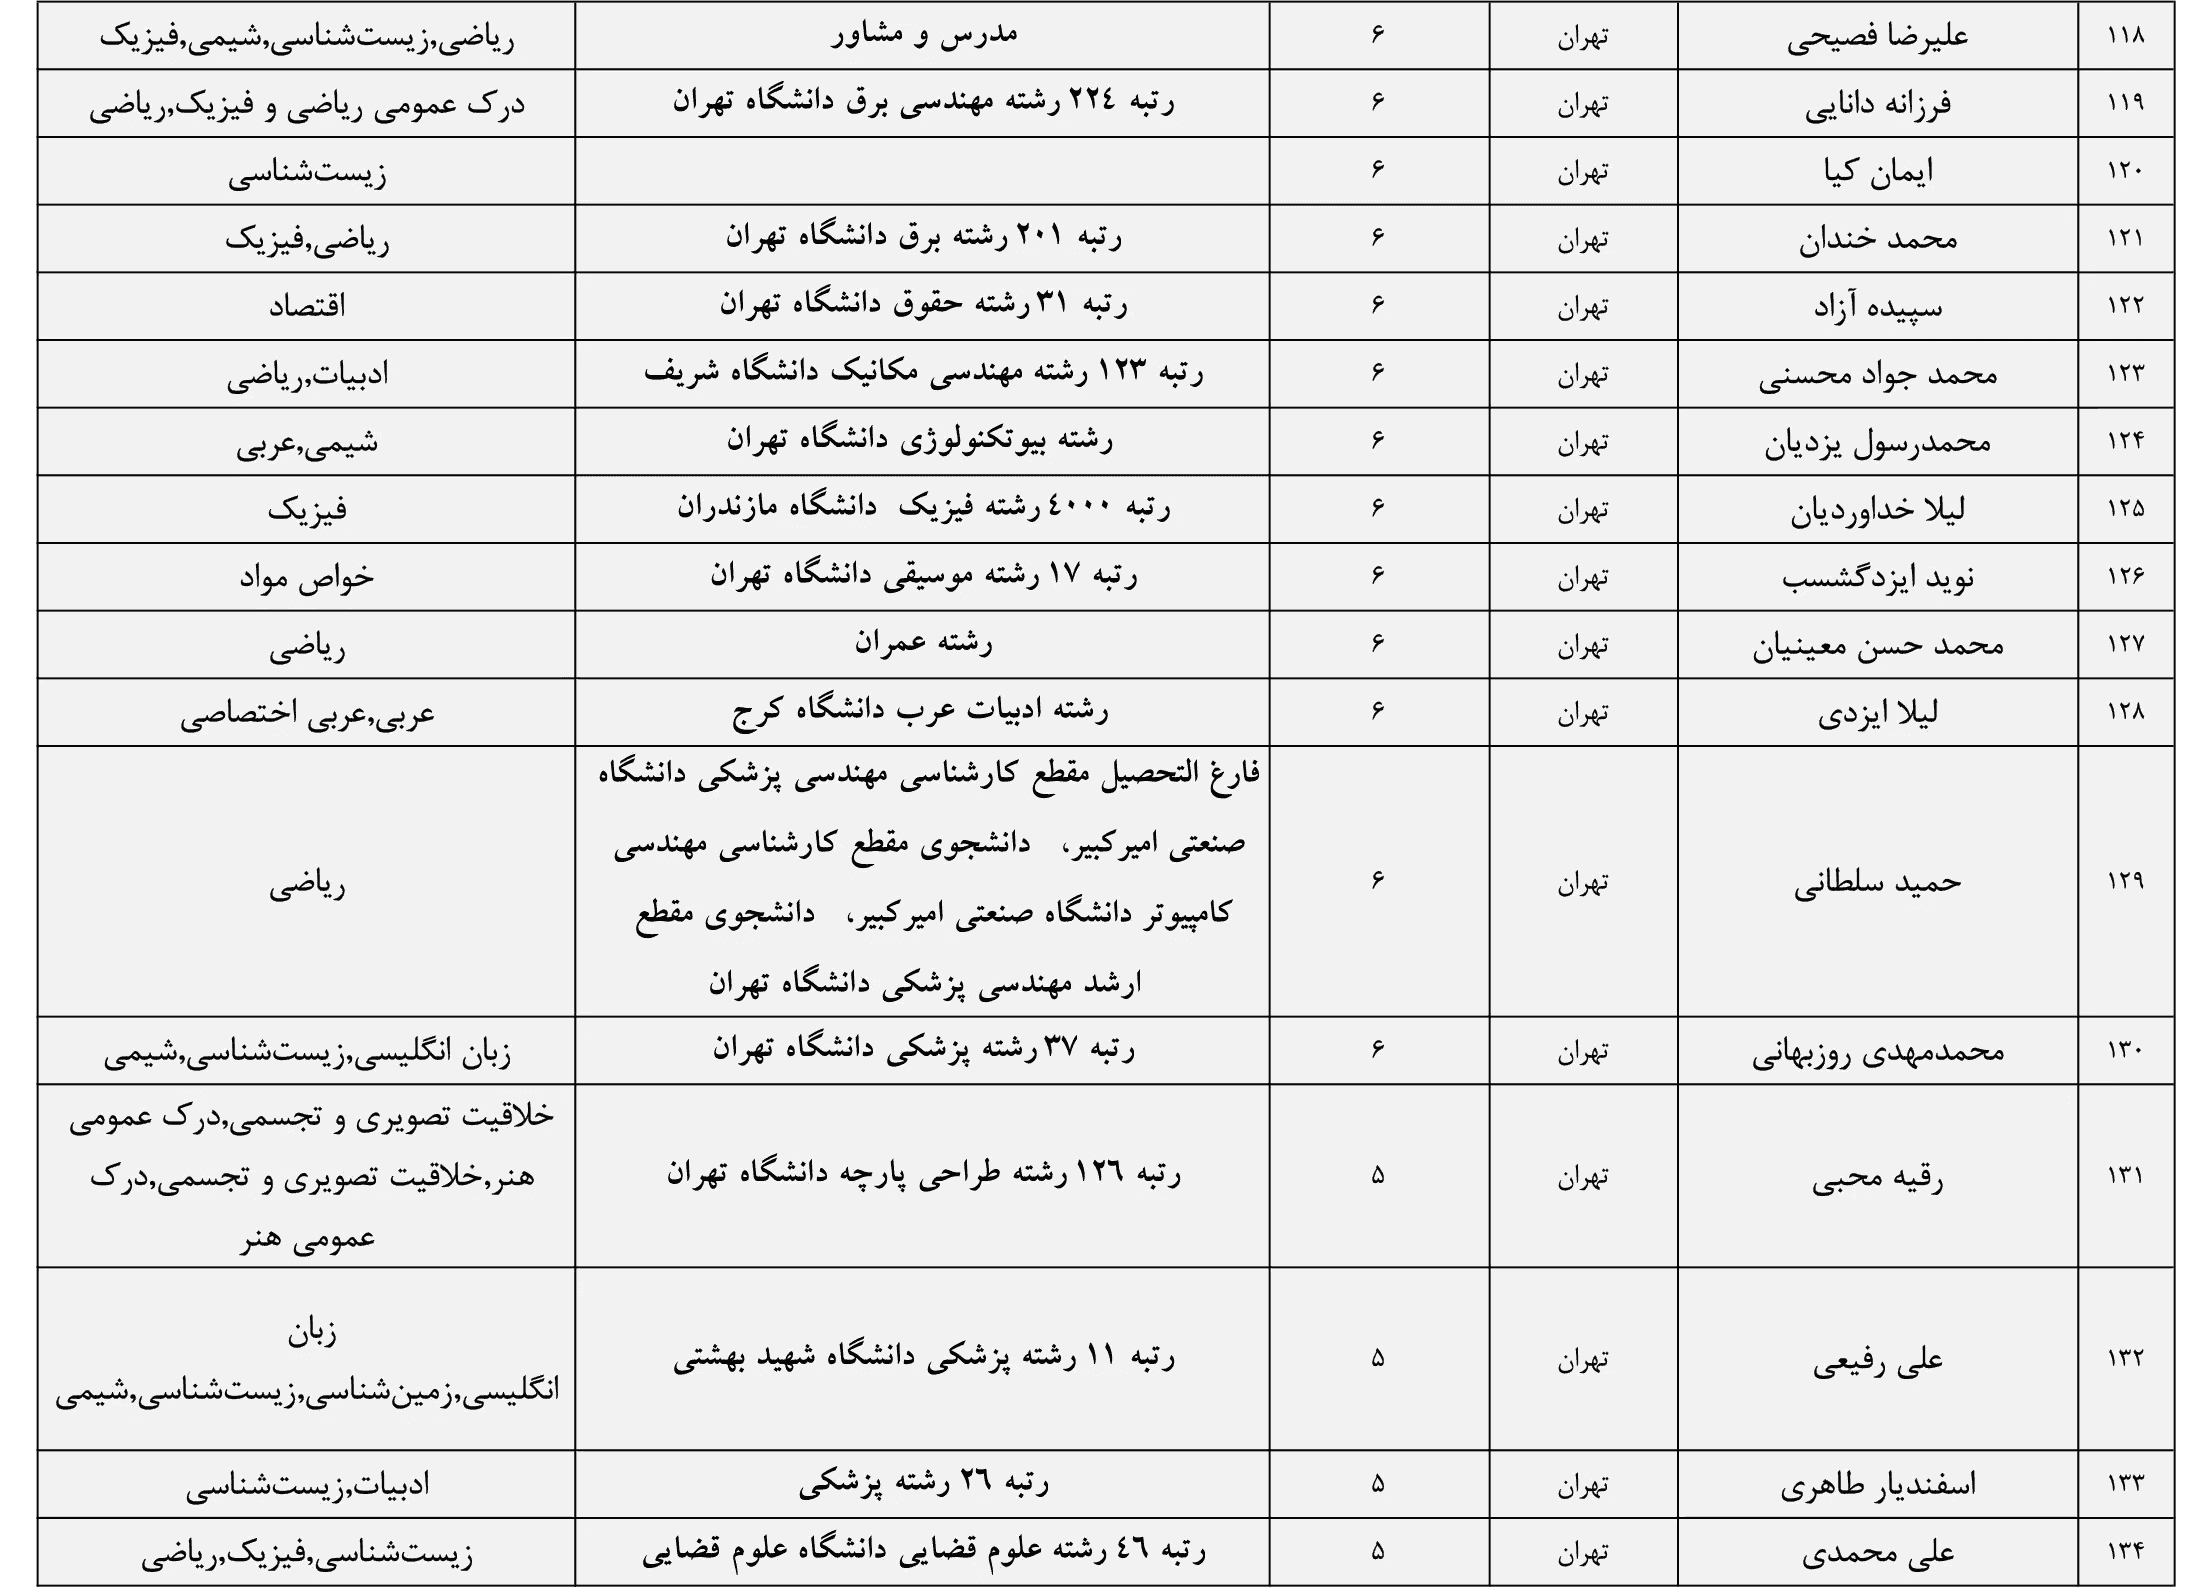 ۱۱۸ علیرضا فصیحی تهران ۶ مدرس و مشاور ریاضی,زیست‌شناسی,شیمی,فیزیک
۱۱۹ فرزانه دانایی تهران ۶ رتبه ٢٢٤ رشته مهندسی برق دانشگاه تهران درک عمومی ریاضی و فیزیک,ریاضی
۱۲۰ ایمان کیا تهران ۶ زیست‌شناسی
۱۲۱ محمد خندان تهران ۶ رتبه ٢٠١ رشته برق دانشگاه تهران ریاضی,فیزیک
۱۲۲ سپیده آزاد تهران ۶ رتبه ٣١ رشته حقوق دانشگاه تهران اقتصاد
۱۲۳ محمد جواد محسنی تهران ۶ رتبه ١٢٣ رشته مهندسی مکانیک دانشگاه شریف ادبیات,ریاضی
۱۲۴ محمدرسول یزدیان تهران ۶ رشته بیوتکنولوژی دانشگاه تهران شیمی,عربی
۱۲۵ لیلا خداوردیان تهران ۶ رتبه ٤٠٠٠ رشته فیزیک دانشگاه مازندران فیزیک
۱۲۶ نوید ایزدگشسب تهران ۶ رتبه ١٧ رشته موسیقی دانشگاه تهران خواص مواد
۱۲۷ محمد حسن معینیان تهران ۶ رشته عمران ریاضی
۱۲۸ لیلا ایزدی تهران ۶ رشته ادبیات عرب دانشگاه کرج عربی,عربی اختصاصی
۱۲۹ حمید سلطانی تهران ۶ فارغ التحصیل مقطع کارشناسی مهندسی پزشکی دانشگاه
صنعتی امیرکبیر، دانشجوی مقطع کارشناسی مهندسی
کامپیوتر دانشگاه صنعتی امیرکبیر، دانشجوی مقطع
ارشد مهندسی پزشکی دانشگاه تهران
ریاضی
۱۳۰ محمدمهدی روزبهانی تهران ۶ رتبه ٣٧ رشته پزشکی دانشگاه تهران زبان انگلیسی,زیست‌شناسی,شیمی
۱۳۱ رقیه محبی تهران ۵ رتبه ١٢٦ رشته طراحی پارچه دانشگاه تهران خلاقیت تصویری و تجسمی,درک عمومی
هنر,خلاقیت تصویری و تجسمی,درک
عمومی هنر
۱۳۲ علی رفیعی تهران ۵ رتبه ١١ رشته پزشکی دانشگاه شهید بهشتی زبان
انگلیسی,زمین‌شناسی,زیست‌شناسی,شیمی
۱۳۳ اسفندیار طاهری تهران ۵ رتبه ٢٦ رشته پزشکی ادبیات,زیست‌شناسی
۱۳۴ علی محمدی تهران ۵ رتبه ٤٦ رشته علوم قضایی دانشگاه علوم قضایی زیست‌شناسی,فیزیک,ریاضی